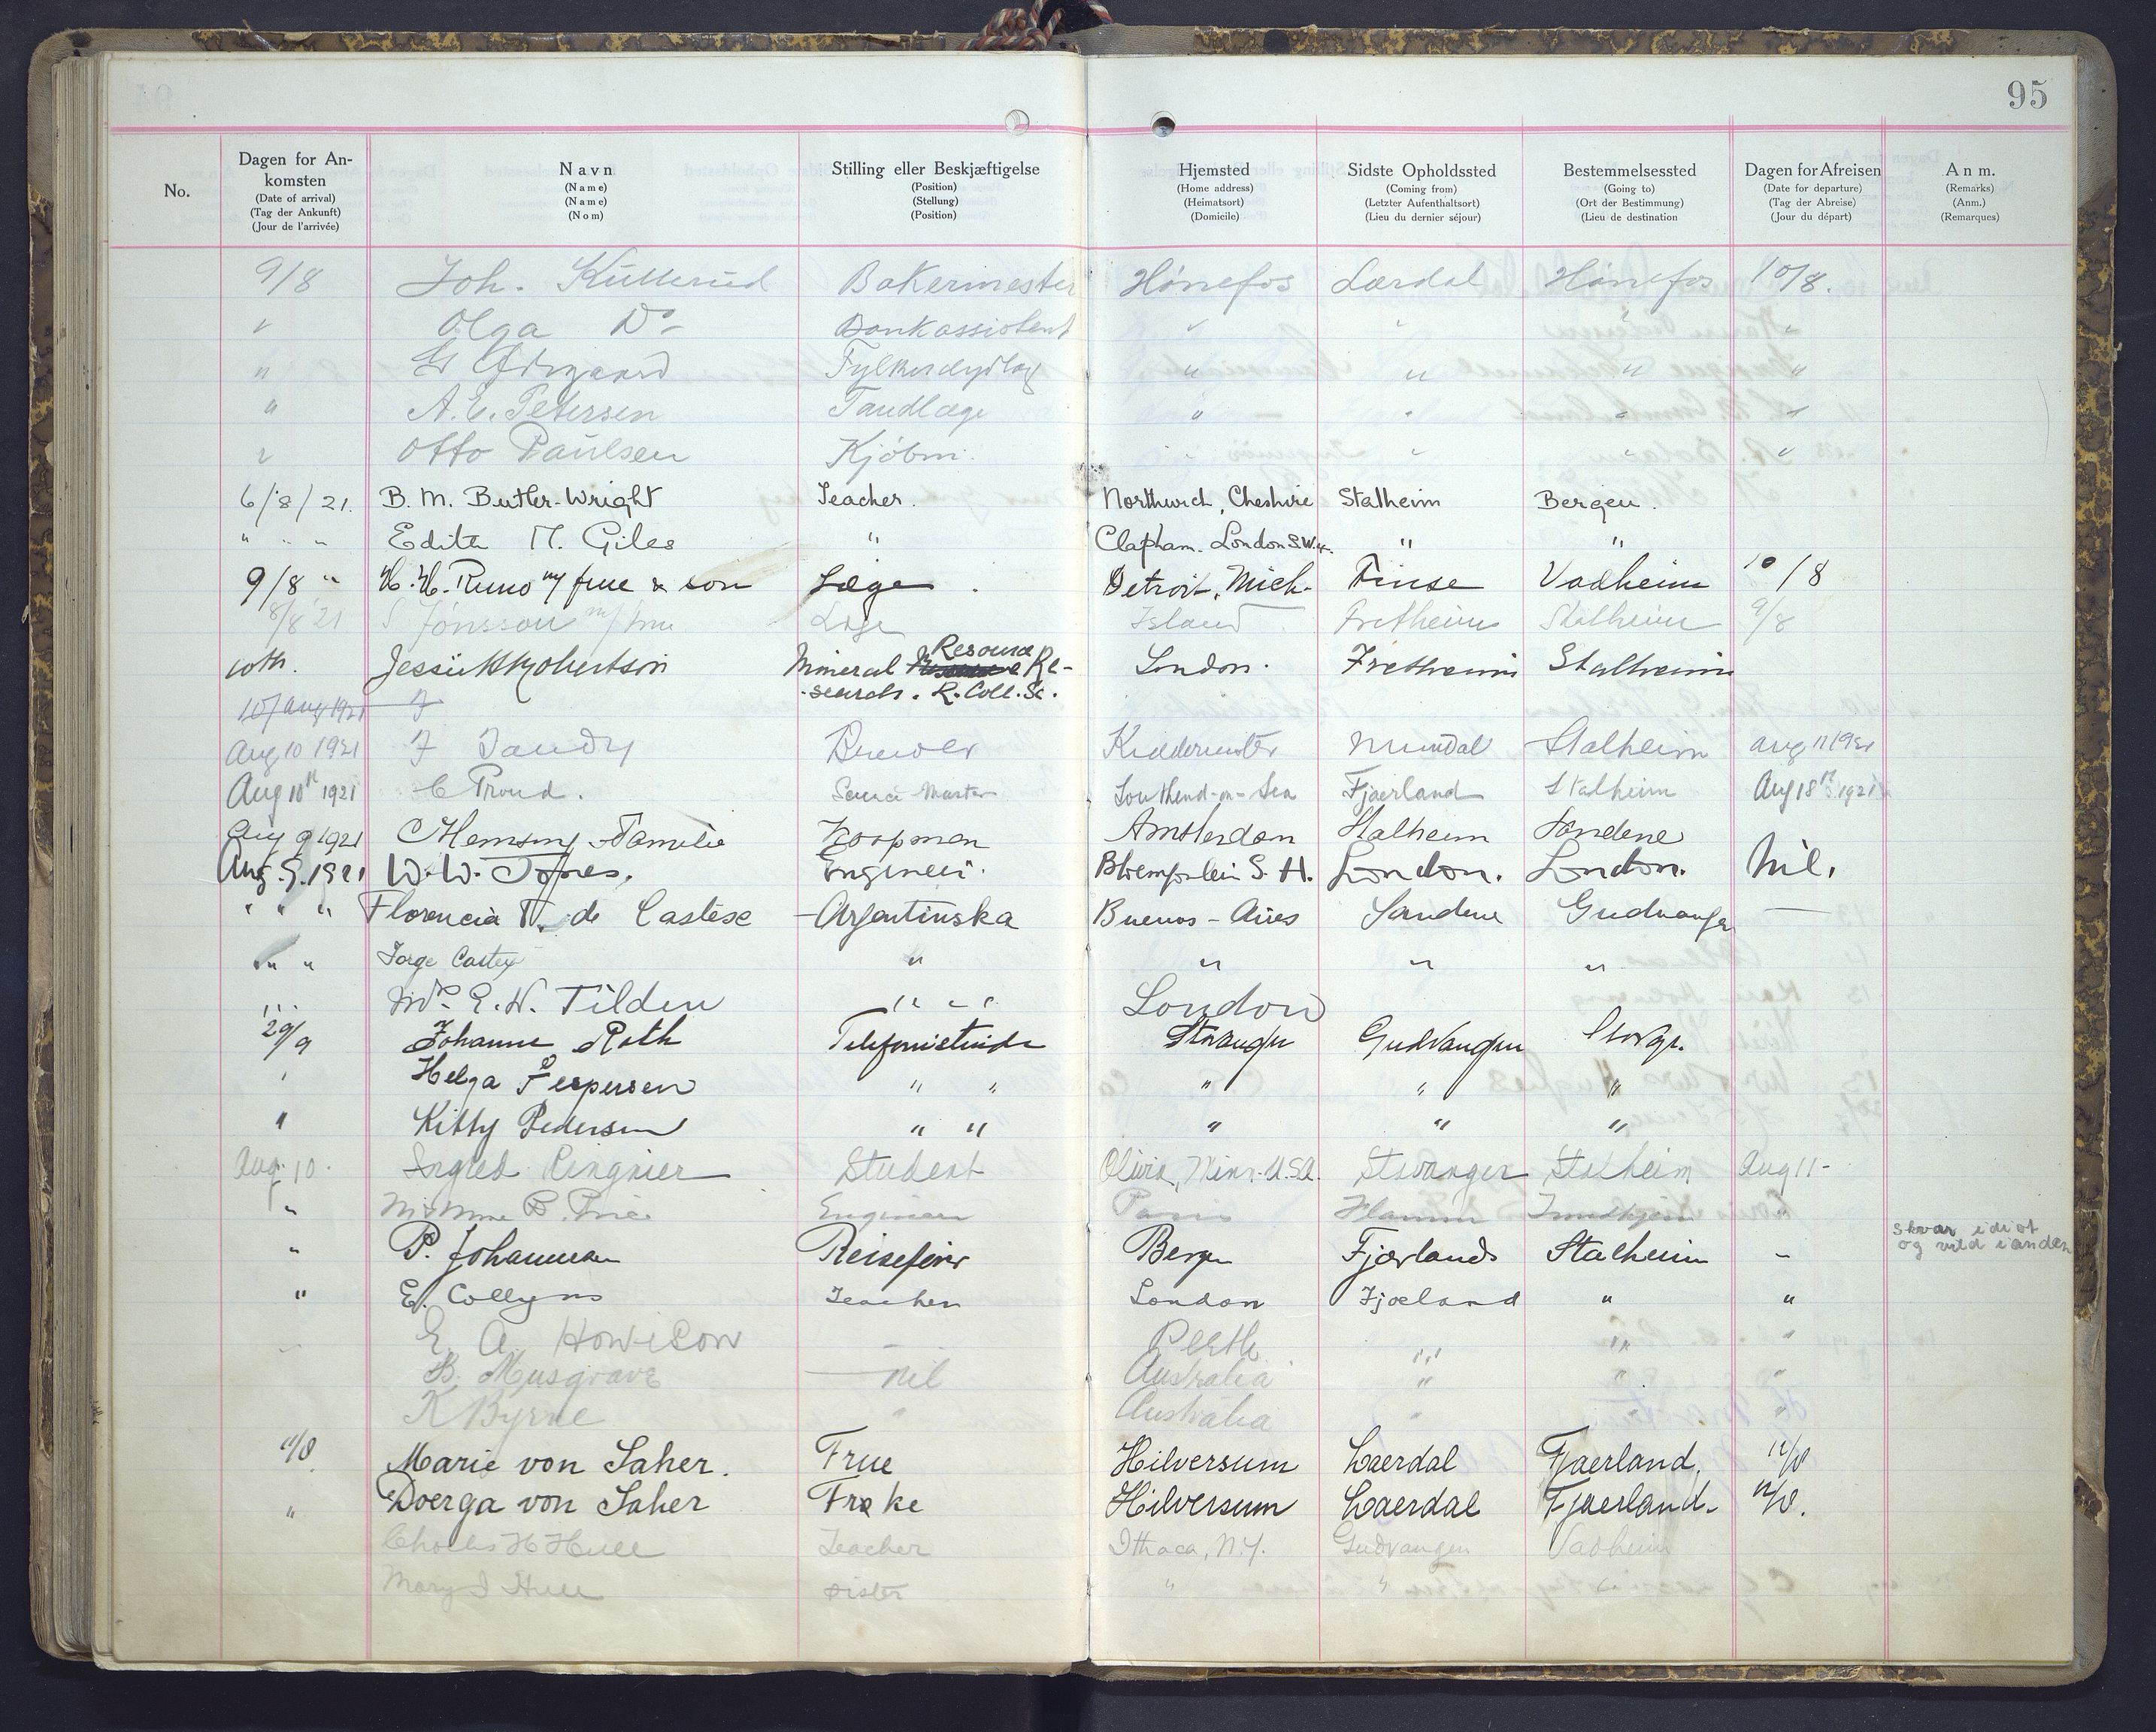 95
No.
Dagen for An-
komsten
(Date of arrival)
(Tag der Ankunft)
(Jour de l'arrivée)
Navn
(Name)
(Name)
(Nom)
Stilling eller Beskjæftigelse
(Position)
(Stellung)
(Position)
Hjemsted
(Home address)
(Heimatsort)
(Domicile)
Sidste Opholdssted
(Coming from)
(Letzter Aufenthaltsort)
(Lieu du dernier séjour)
Bestemmelsessted
(Going to)
(Ort der Bestimmung)
(Lieu de destination
Dagen for Afreisen
(Date for departure)
(Tag der Abreise)
(Jour du départ)
Anm.
(Remarks)
(Anm.)
(Remarques)
9/8 Joh. Kullerud Bakermester Hönefos Lærdal Hönefos 10/8.
" Olga Do Bankassistent " " " "
" Ødegaard " " " "
" A. E. Petersen Tandlæge " " " "
" Otto Paulsen Kjöbm. " " " "
6/8/21. B. M. Butler-Wright Teacher. Northwich, Cheshire Stalheim Bergen.
" " " Edith M. Giles " Clapham. London S.W.4. " "
9/8 " H. H. Runo m/ frue & son Læge. Detroit, Mich. Finse Vadheim 10/8
8/8 21 S Jónsson m/ frue Læge Island Fretheim Stalheim 9/8
10th. Jessie Robertson Mineral Resource Re-
search. R. Coll. Sc. London. Fretheim Stalheim
10/ Aug 1921 F
Aug 10 1921 F Tandy Brewer Kidderminster Mundal Stalheim Aug 11 1921
Aug 10th 1921 C Proud. Science Master Southend-on-Sea Fjaerland Stalheim Aug 18th 1921
Aug 9 1921 Familie Koopman Amsterdam Stalheim Sandene
Aug. 9. 1921 W. W. Jones. Engineer. S. A. London. London. Nil.
" " " Florencia T. de Castex - Argentinska Buenos-Aires Sandene Gudvangen —
" " Jorge Castex " " " "
" " E. W. Tilden " " " London
29/9 Johanne Roth Telefonistinde Stavanger Gudvangen Stavgr.
" Helga Jespersen " " " " "
" Kitty Pedersen " " " " "
Aug. 10. Ingred Ringnier Student Olivia, Minn. U.S.A. Stavanger Stalheim Aug 11-
" Mr & Mme B. Engineer Paris "
" P. Johannesen Reisefører Bergen Fjærland Stalheim " Skvær idiot
og vild i anden
" E. Collyns Teacher London Fjæland " "
" E. A. Howieson - Perth " " "
B. Musgrave — nil Australia " " "
K Byrne " Australia " " "
11/8 Marie von Saher. Frue Hilversum Laerdal Fjaerland. 12/8
" Doerga von Saher Frøke Hilversum Laerdal Fjaerland. 12/8.
Charles H Hull Teacher Ithaca, N.Y. Gudvangen Vadheim
Mary I Hull sister " " "